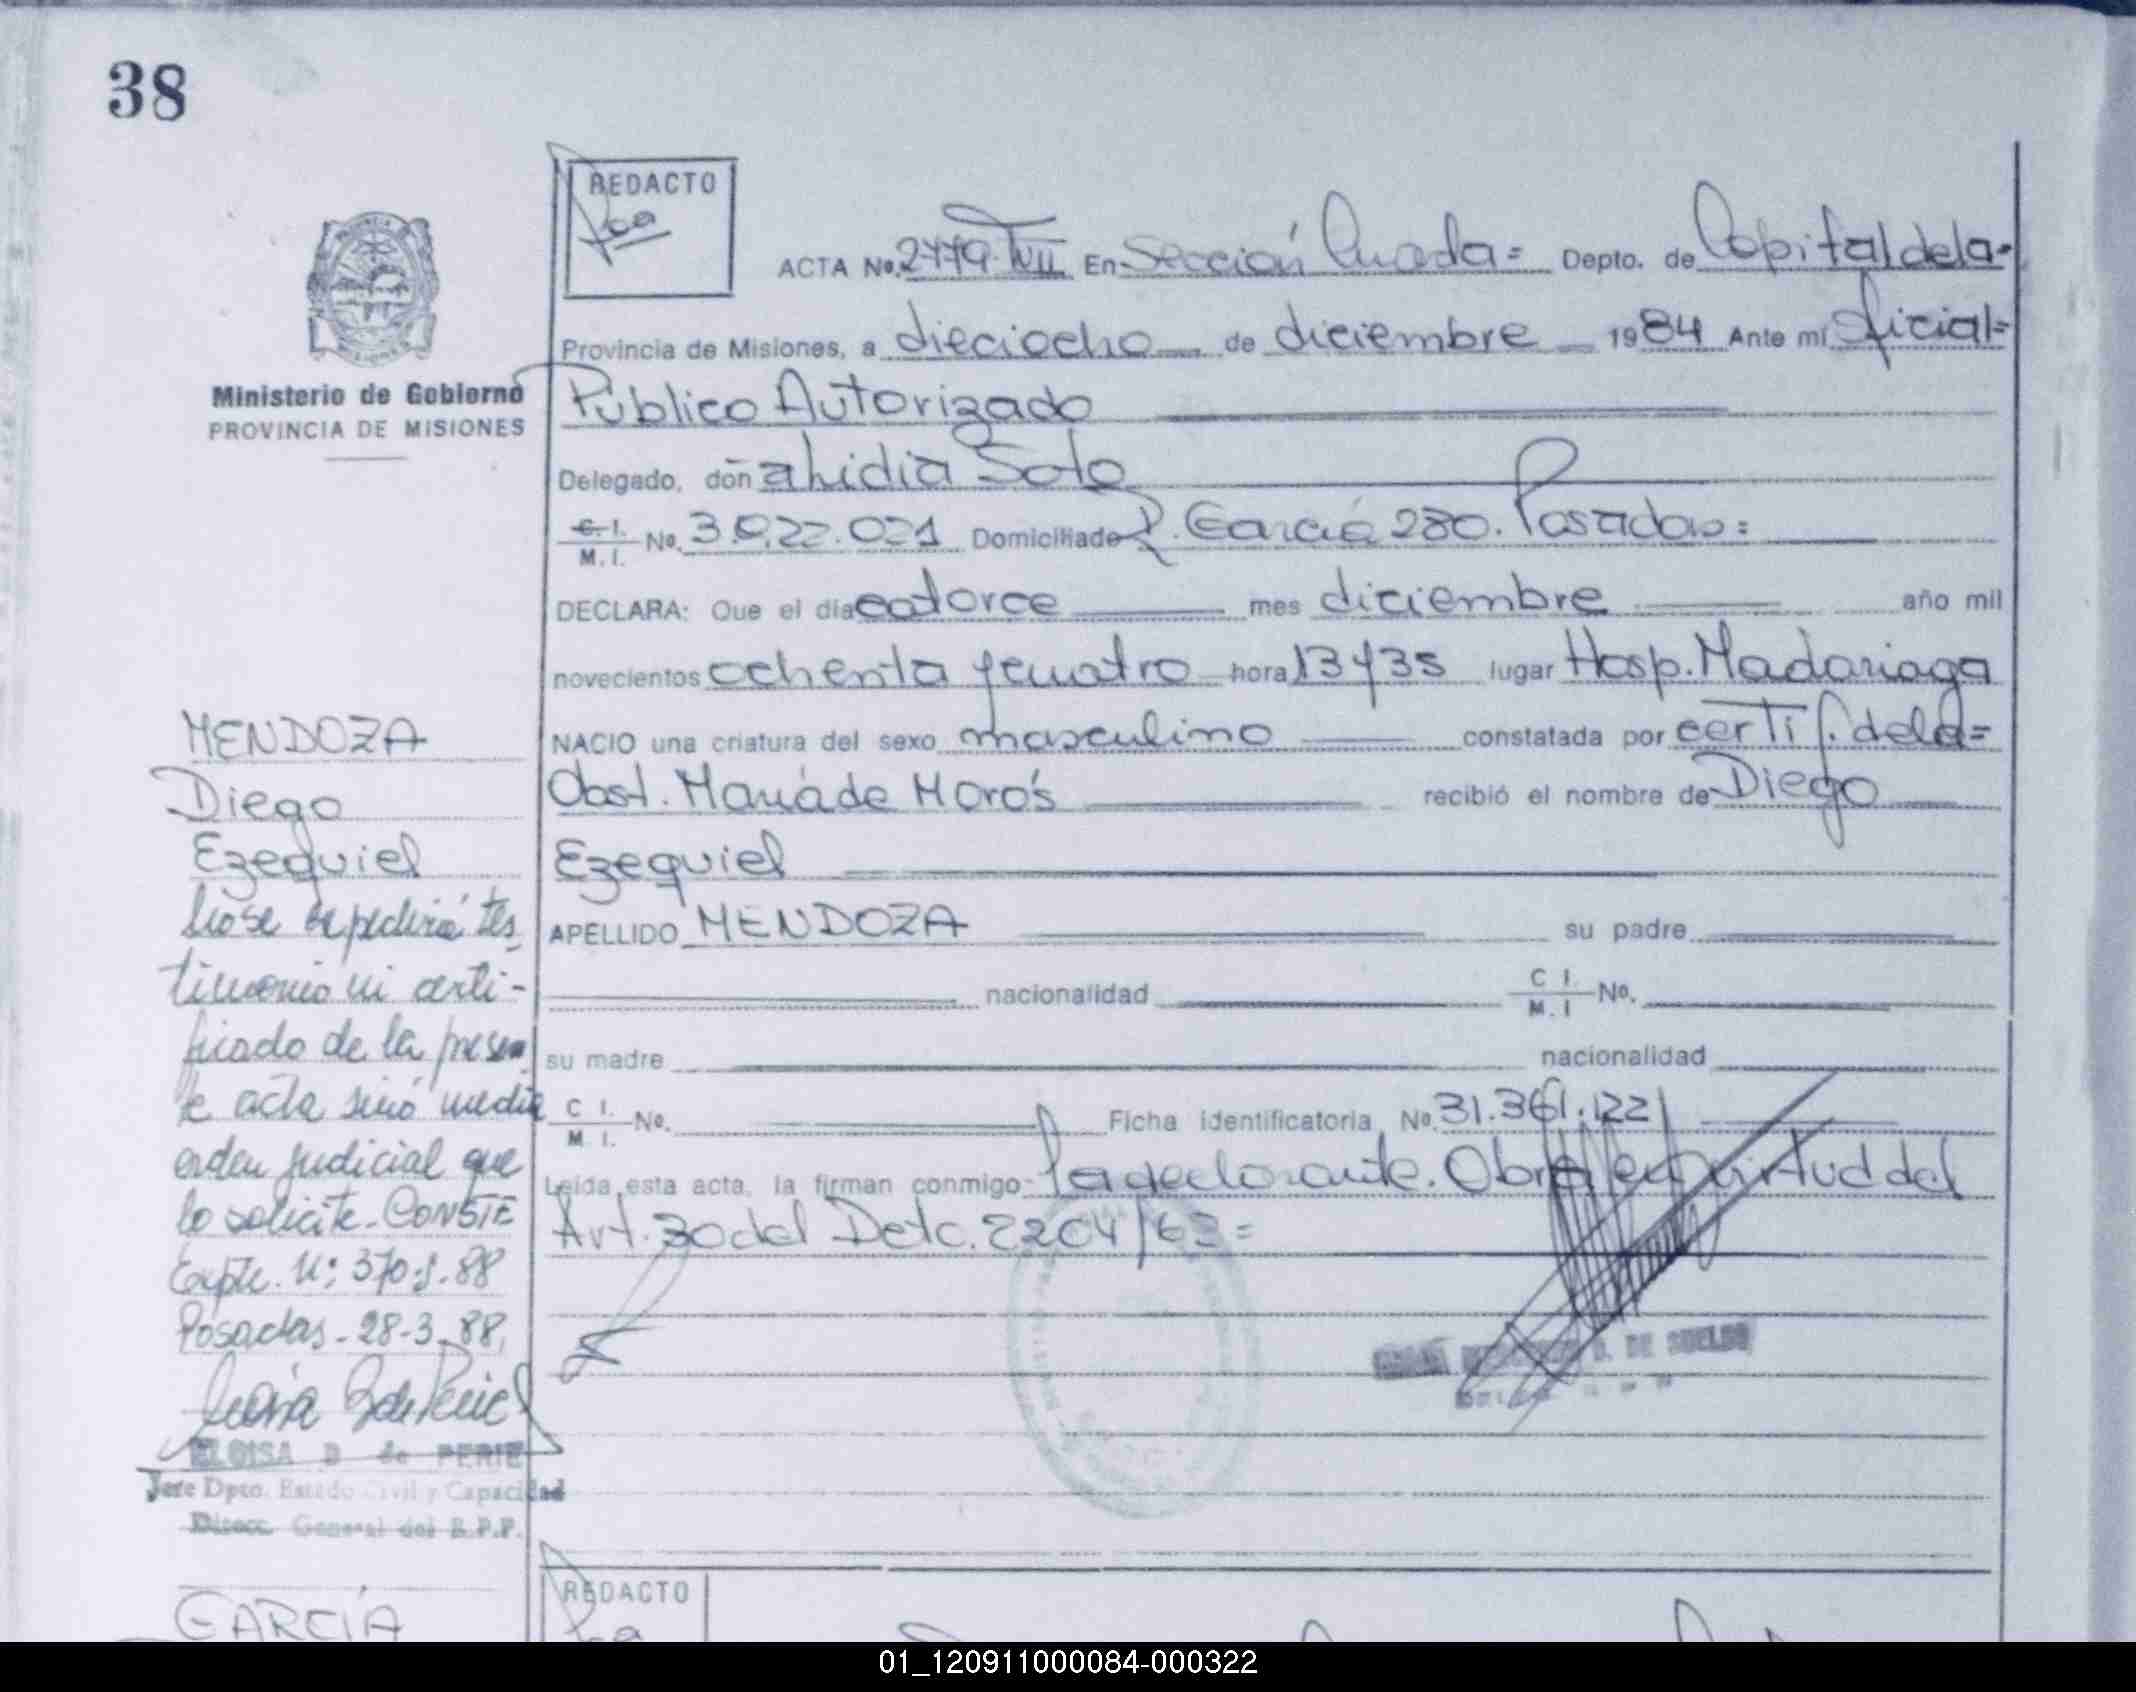 38
REDACTO
ACTA No. 2779. T VII En Sección Cuarta= Depto. de Capital de la=
Provincia de Misiones, a dieciocho de diciembre 1984 Ante mi Oficial=
Ministerio de Gobierno
PROVINCIA DE MISIONES
Público Autorizado
Delegado, doña Lidia Soto
C. I. M. I. No. 3.022.021 Domiciliado R. García 280. Posadas=
DECLARA: Que el día catorce mes diciembre año mil
novecientos ochenta y cuatro hora 13 y 35 lugar Hosp. Madariaga
NACIO una criatura del sexo masculino constatada por certif. de la=
Obst. María de Morós recibió el nombre de Diego
Ezequiel
APELLIDO MENDOZA su padre
nacionalidad C I. M. I No.
su madre nacionalidad
C I. M I. No. Ficha identificatoria No. 31.361.122
Leída esta acta, la firman conmigo la declarante. Obra en virtud del
Art. 30 del Deto. 2204/63=
MENDOZA
Diego
Ezequiel
No se expedirá tes
timonio ni certi-
ficado de la presen
te acta sinó media
orden judicial que
lo solicite. CONSTE
Expte. N: 370-S-88
Posadas - 28-3-88
ELOISA B de PERIE
Jefe Dpto. Estado Civil y Capacidad
Direcc. General del R.P.P.
D. DE SUELDO
GARCÍA
REDACTO
01_120911000084-000322